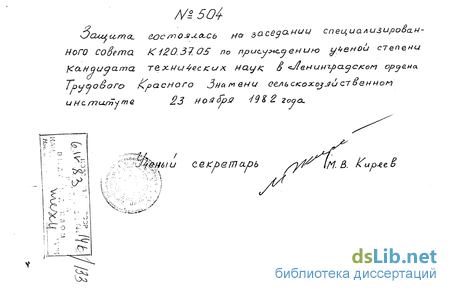 № 504
Защита состоялась на заседании специализирован-
ного совета К 120.37.05 по присуждению ученой степени
кандидата технических наук в Ленинградском ордена
Трудового Красного Знамени сельскохозяйственном
институте 23 ноября 1982 года
Ученый секретарь М.В. Киреев
dsLib.net
библиотека диссертаций